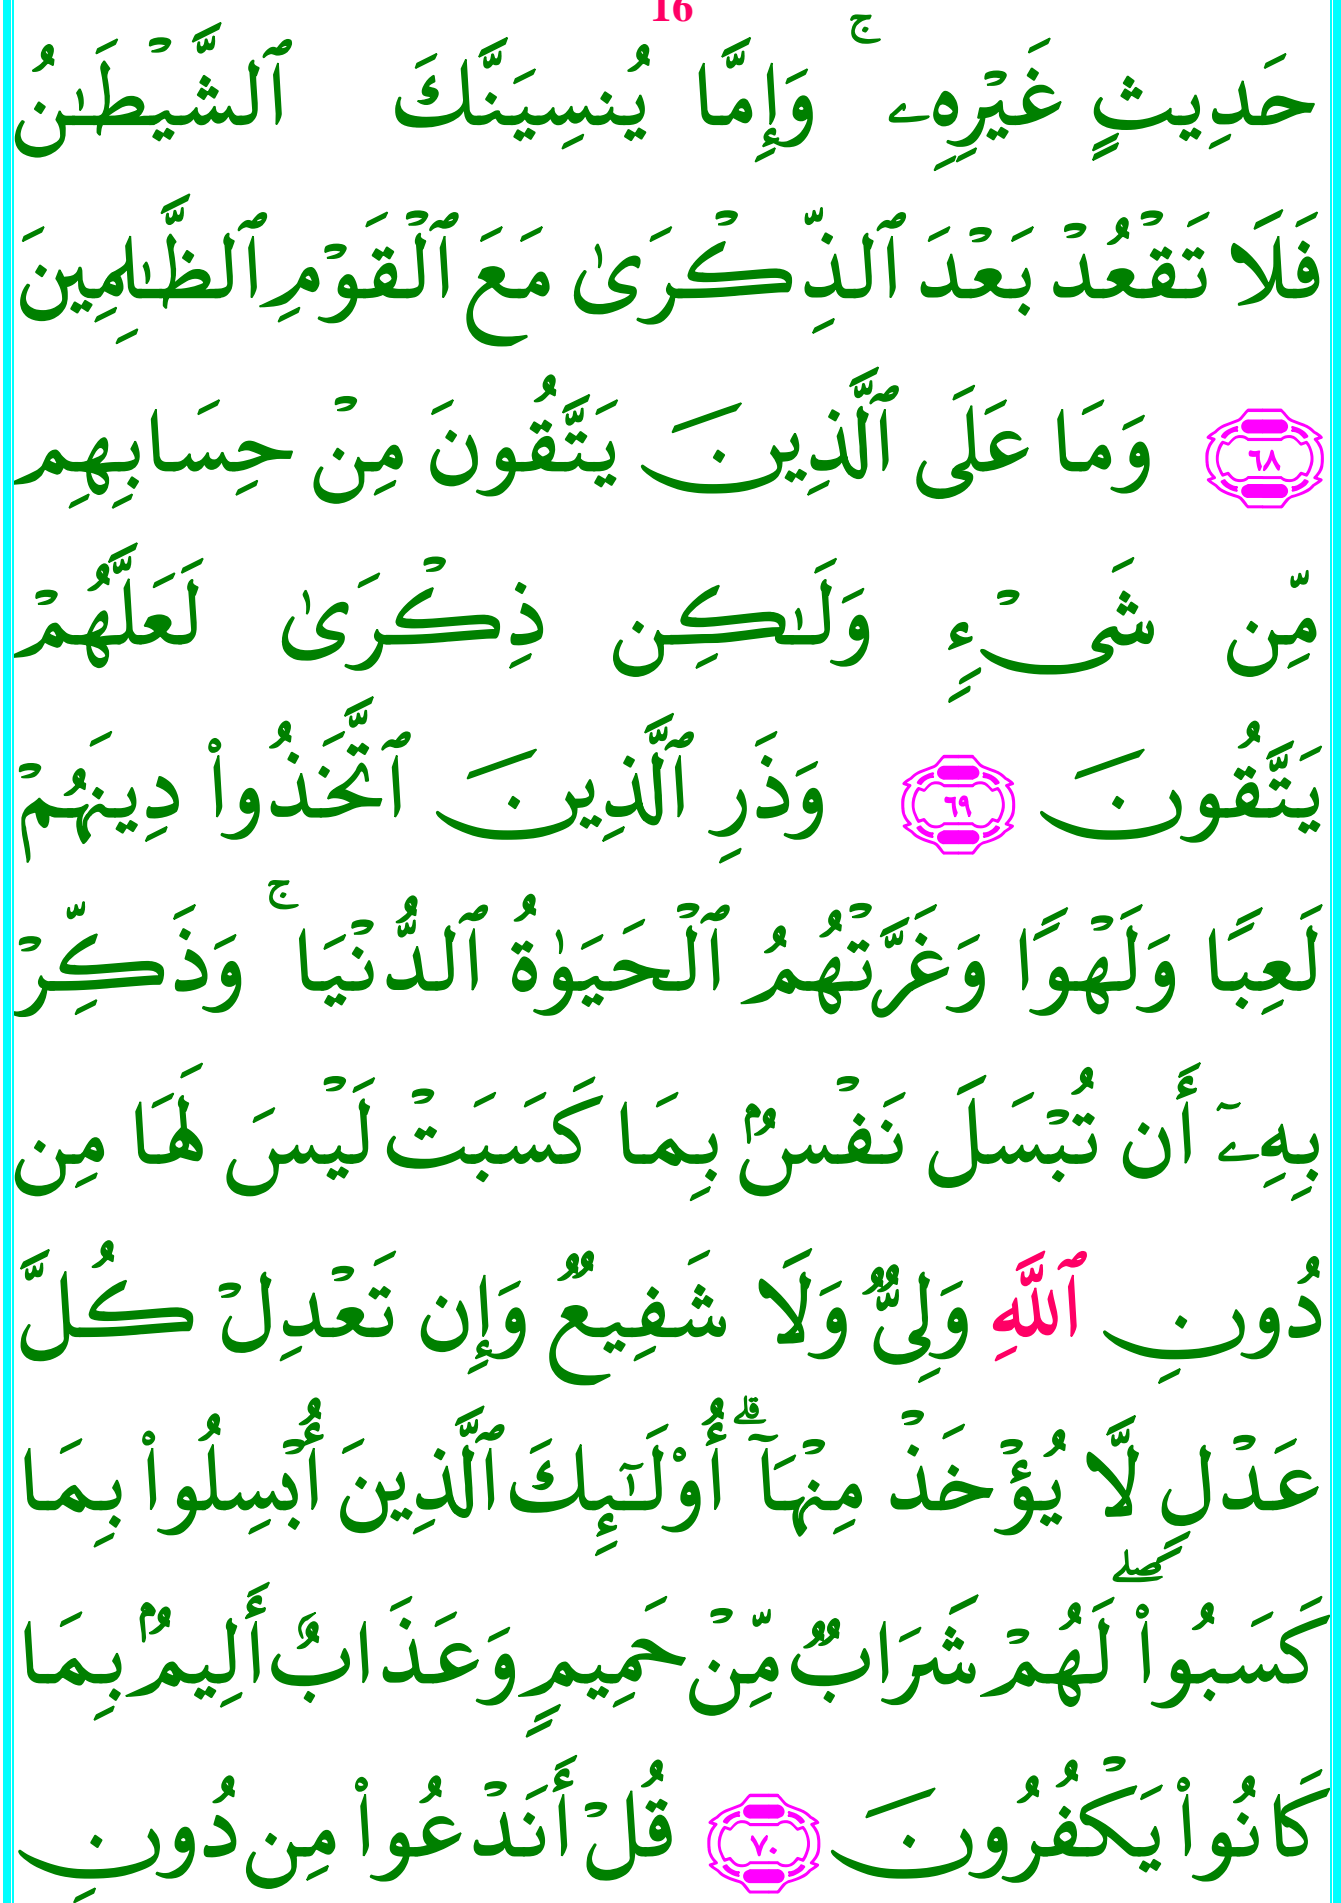 16
حَدِيثٍ غَيْرِهِۦ ۚ وَإِمَّا يُنسِيَنَّكَ ٱلشَّيْطَـٰنُ
فَلَا تَقْعُدْ بَعْدَ ٱلذِّكْرَىٰ مَعَ ٱلْقَوْمِ ٱلظَّـٰلِمِينَ
٦٨ وَمَا عَلَى ٱلَّذِينَ يَتَّقُونَ مِنْ حِسَابِهِم
مِّن شَىْءٍ وَلَـٰكِن ذِكْرَىٰ لَعَلَّهُمْ
يَتَّقُونَ ٦٩ وَذَرِ ٱلَّذِينَ ٱتَّخَذُوا۟ دِينَهُمْ
لَعِبًا وَلَهْوًا وَغَرَّتْهُمُ ٱلْحَيَوٰةُ ٱلدُّنْيَا ۚ وَذَكِّرْ
بِهِۦٓ أَن تُبْسَلَ نَفْسٌۢ بِمَا كَسَبَتْ لَيْسَ لَهَا مِن
دُونِ ٱللَّهِ وَلِىٌّ وَلَا شَفِيعٌ وَإِن تَعْدِلْ كُلَّ
عَدْلٍ لَّا يُؤْخَذْ مِنْهَآ ۗ أُو۟لَـٰٓئِكَ ٱلَّذِينَ أُبْسِلُوا۟ بِمَا
كَسَبُوا۟ ۖ لَهُمْ شَرَابٌ مِّنْ حَمِيمٍ وَعَذَابٌ أَلِيمٌۢ بِمَا
كَانُوا۟ يَكْفُرُونَ ٧٠ قُلْ أَنَدْعُوا۟ مِن دُونِ